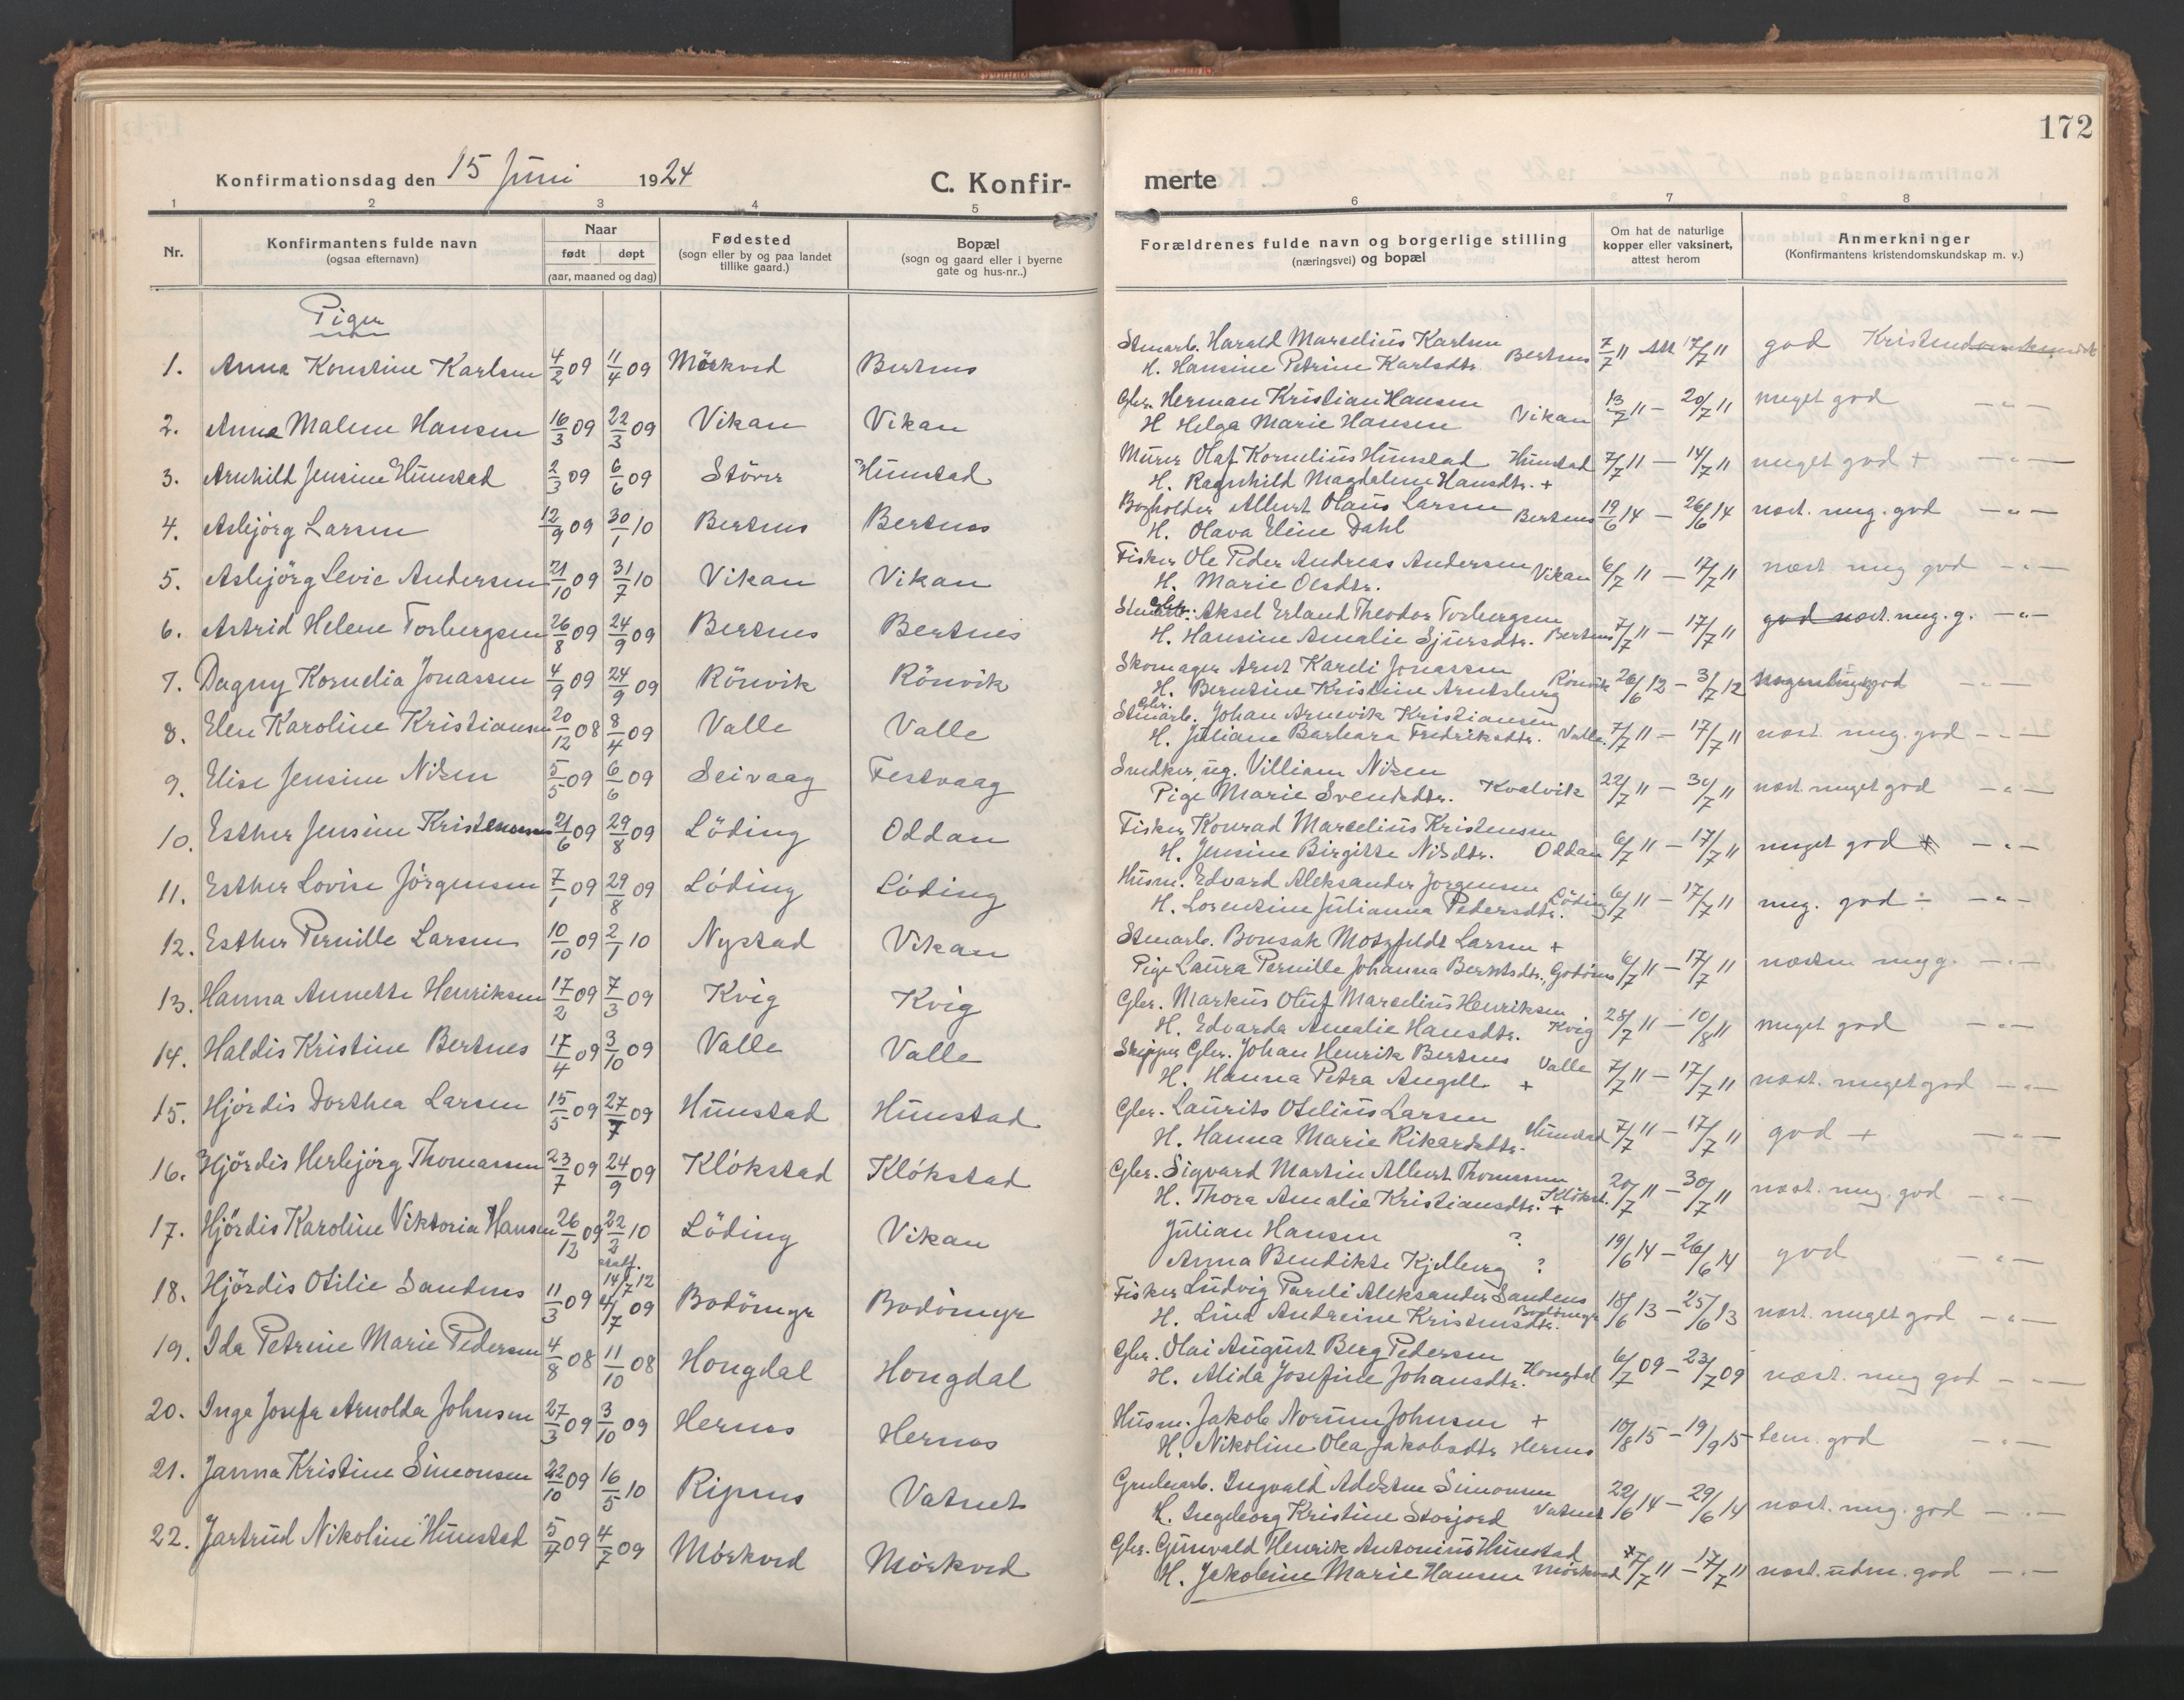 172
Konfirmationsdag den 15 Juni 1924
C. Konfir-
merte
1 2 3 4 5 6 7 8
Nr.
Konfirmantens fulde navn
(ogsaa efternavn)
Naar
født døpt
(aar, maaned og dag)
Fødested
(sogn eller by og paa landet
tillike gaard.)
Bopæl
(sogn og gaard eller i byerne
gate og hus-nr..)
Forældrenes fulde navn og borgerlige stilling
(næringsvei) og bopæl
Om hat de naturlige
kopper eller vaksinert,
attest herom
Anmerkninger
(Konfirmantens kristendomskundskap m. v.)
Piger
1. Anna Konstine Karlsen 4/2 09 11/4 09 Mörkved Bertnes
Stenarb. Harald Marselius Karlsen
H. Hansine Petrine Karlsdtr. Bertnes 7/7 11 Att 17/7 11 god Kristendomskundsk
2. Anna Malene Hansen 16/3 09 22/3 09 Vikan Vikan
Gbr. Herman Kristian Hansen
H Helga Marie Hansen Vikan 13/7 11 — 20/7 11 meget god — " —
3. Arnhild Jensine Hunstad 2/3 09 6/6 09 Störer Hunstad
Murer Olaf Kornelius Hunstad Hunstad 7/7 11 — 14/7 11 meget god + — " —
H. Ragnhild Magdalene Hansdtr. +
4. Asbjörg Larsen 12/9 09 30/1 10 Bertnes Bertnes
Albert Olaus Larsen Bertnes 19/6 14 — 26/6 14 næst. meg. god — " —
H. Olava Eline Dahl
5. Asbjörg Levie Andersen 21/10 09 31/7 10 Vikan Vikan
Fisker Ole Peder Andreas Andersen Vikan 6/7 11 — 17/7 11 næst. meg god — " —
H. Marie Olsdtr.
6. Astrid Helene Torbergsen 26/8 09 24/9 09 Bertnes Bertnes
Stenarb. Gbr. Aksel Erland Theodor Torbergsen
H. Hansine Amalie Sjursdtr. Bertnes 7/7 11 — 17/7 11 god næst. meg. g. — " —
7. Dagny Kornelia Jonassen 4/9 09 24/9 09 Rönvik Rönvik
Skomager Arnt Kareli Jonassen
H. Berntine Kristine Arntsberg Rönvik 26/6 12 — 3/7 12 god — " —
8. Elen Karoline Kristiansen 20/12 08 8/4 09 Valle Valle
Gbr.
Stenarb. Johan Arnevik Kristiansen
H. Juliane Barbara Fredriksdtr. Valle 7/7 11 — 17/7 11 næst. meg. god — " —
9. Elise Jensine Nilsen 5/5 09 6/6 09 Seivaag Festvaag
Snedker, ug. Villiam Nilsen
Pige Marie Svendsdtr. Kvalvik 22/7 11 — 30/7 11 næst. meget god — " —
10. Esther Jensine Kristensen 21/6 09 29/8 09 Löding Oddan
Fisker Konrad Marselius Kristensen
H. Jensine Birgitte Nilsdtr. Oddan 6/7 11 — 17/7 11 meget god — " —
11. Esther Lovise Jörgensen 7/1 09 29/8 09 Löding Löding
Husm. Edvard Aleksander Jörgensen
H. Lorentine Julianna Pedersdtr. Löding 6/7 11 — 17/7 11 meg. god ÷ — " —
12. Esther Pernille Larsen 10/10 09 2/1 10 Nystad Vikan
Stenarb. Bonsak Motzfeldt Larsen +
Pige Laura Pernille Johanna Berntsdtr., Godönes 6/7 11 — 17/7 11 næsten meg g. — " —
13. Hanna Annette Henriksen 17/2 09 7/3 09 Kvig Kvig
Gbr. Markus Oluf Marselius Henriksen
H. Edvarda Amalie Hansdtr. Kvig 28/7 11 — 10/8 11 meget god — " —
14. Haldis Kristine Bertnes 17/4 09 3/10 09 Valle Valle
Skipper Gbr. Johan Henrik Bertnes Valle 7/7 11 — 17/7 11 næst. meget god — " —
H. Hanna Petra Angell +
15. Hjördis Dorthea Larsen 15/5 09 27/7 09 Hunstad Hunstad
Gbr. Laurits Otelius Larsen
H. Hanna Marie Rikardsdtr. Hunstad 7/7 11 — 17/7 11 god + — " —
16. Hjördis Herbjörg Thomassen 23/7 09 24/9 09 Klökstad Klökstad
Gbr. Sigvard Martin Albert Thomassen
H. Thora Amalie Kristiansdtr. + Klökst. 20/7 11 — 30/7 11 næst. meg. god — " —
17. Hjördis Karoline Viktoria Hansen 26/12 09 22/2 10 Löding Vikan
Julian Hansen ?
Anna Bendikte Kjelberg ? 19/6 14 — 26/6 14 god — " —
18. Hjördis Otilie Sandnes 11/3 09 14/7 12 4/7 09 Bodömyr Bodömyr
Fisker Ludvig Pareli Aleksander Sandnes
H. Lina Andreine Kristensdtr. Bodömyr 18/6 13 — 25/6 13 næst. meget god — " —
19. Ida Petrine Marie Pedersen 4/8 08 11/10 08 Hongdal Hongdal
Gbr. Olai August Berg Pedersen
H. Alida Josefine Johansdtr. Hongdal 6/7 09 — 23/7 09 næst. meg god — " —
20. Inga Josefa Arnolda Johnsen 27/3 09 3/10 09 Hernes Hernes
Husm. Jakob Norum Johnsen +
H. Nikoline Olea Jakobsdtr Hernes 10/8 15 — 19/9 15 tem. god — " —
21. Janna Kristine Simonsen 22/10 09 16/5 10 Ripnes Vatnet
Grubearb. Ingvald Adelsten Simonsen
H. Ingeborg Kristine Storjord Vatnet 22/6 14 — 29/6 14 næst. meg. god — " —
22. Jartrud Nikoline Hunstad 5/4 09 4/7 09 Mörkved Mörkved
Gbr. Gunvald Henrik Antonius Hunstad
H. Jakobine Marie Hansen Mörkved 7/7 11 — 17/7 11 næst. udm. god — " —